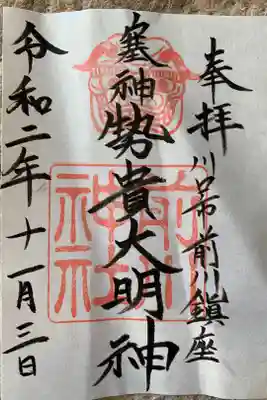 奉拝
川口市前川鎮座
塞神
勢貴大明神
前川神社
令和二年十一月三日